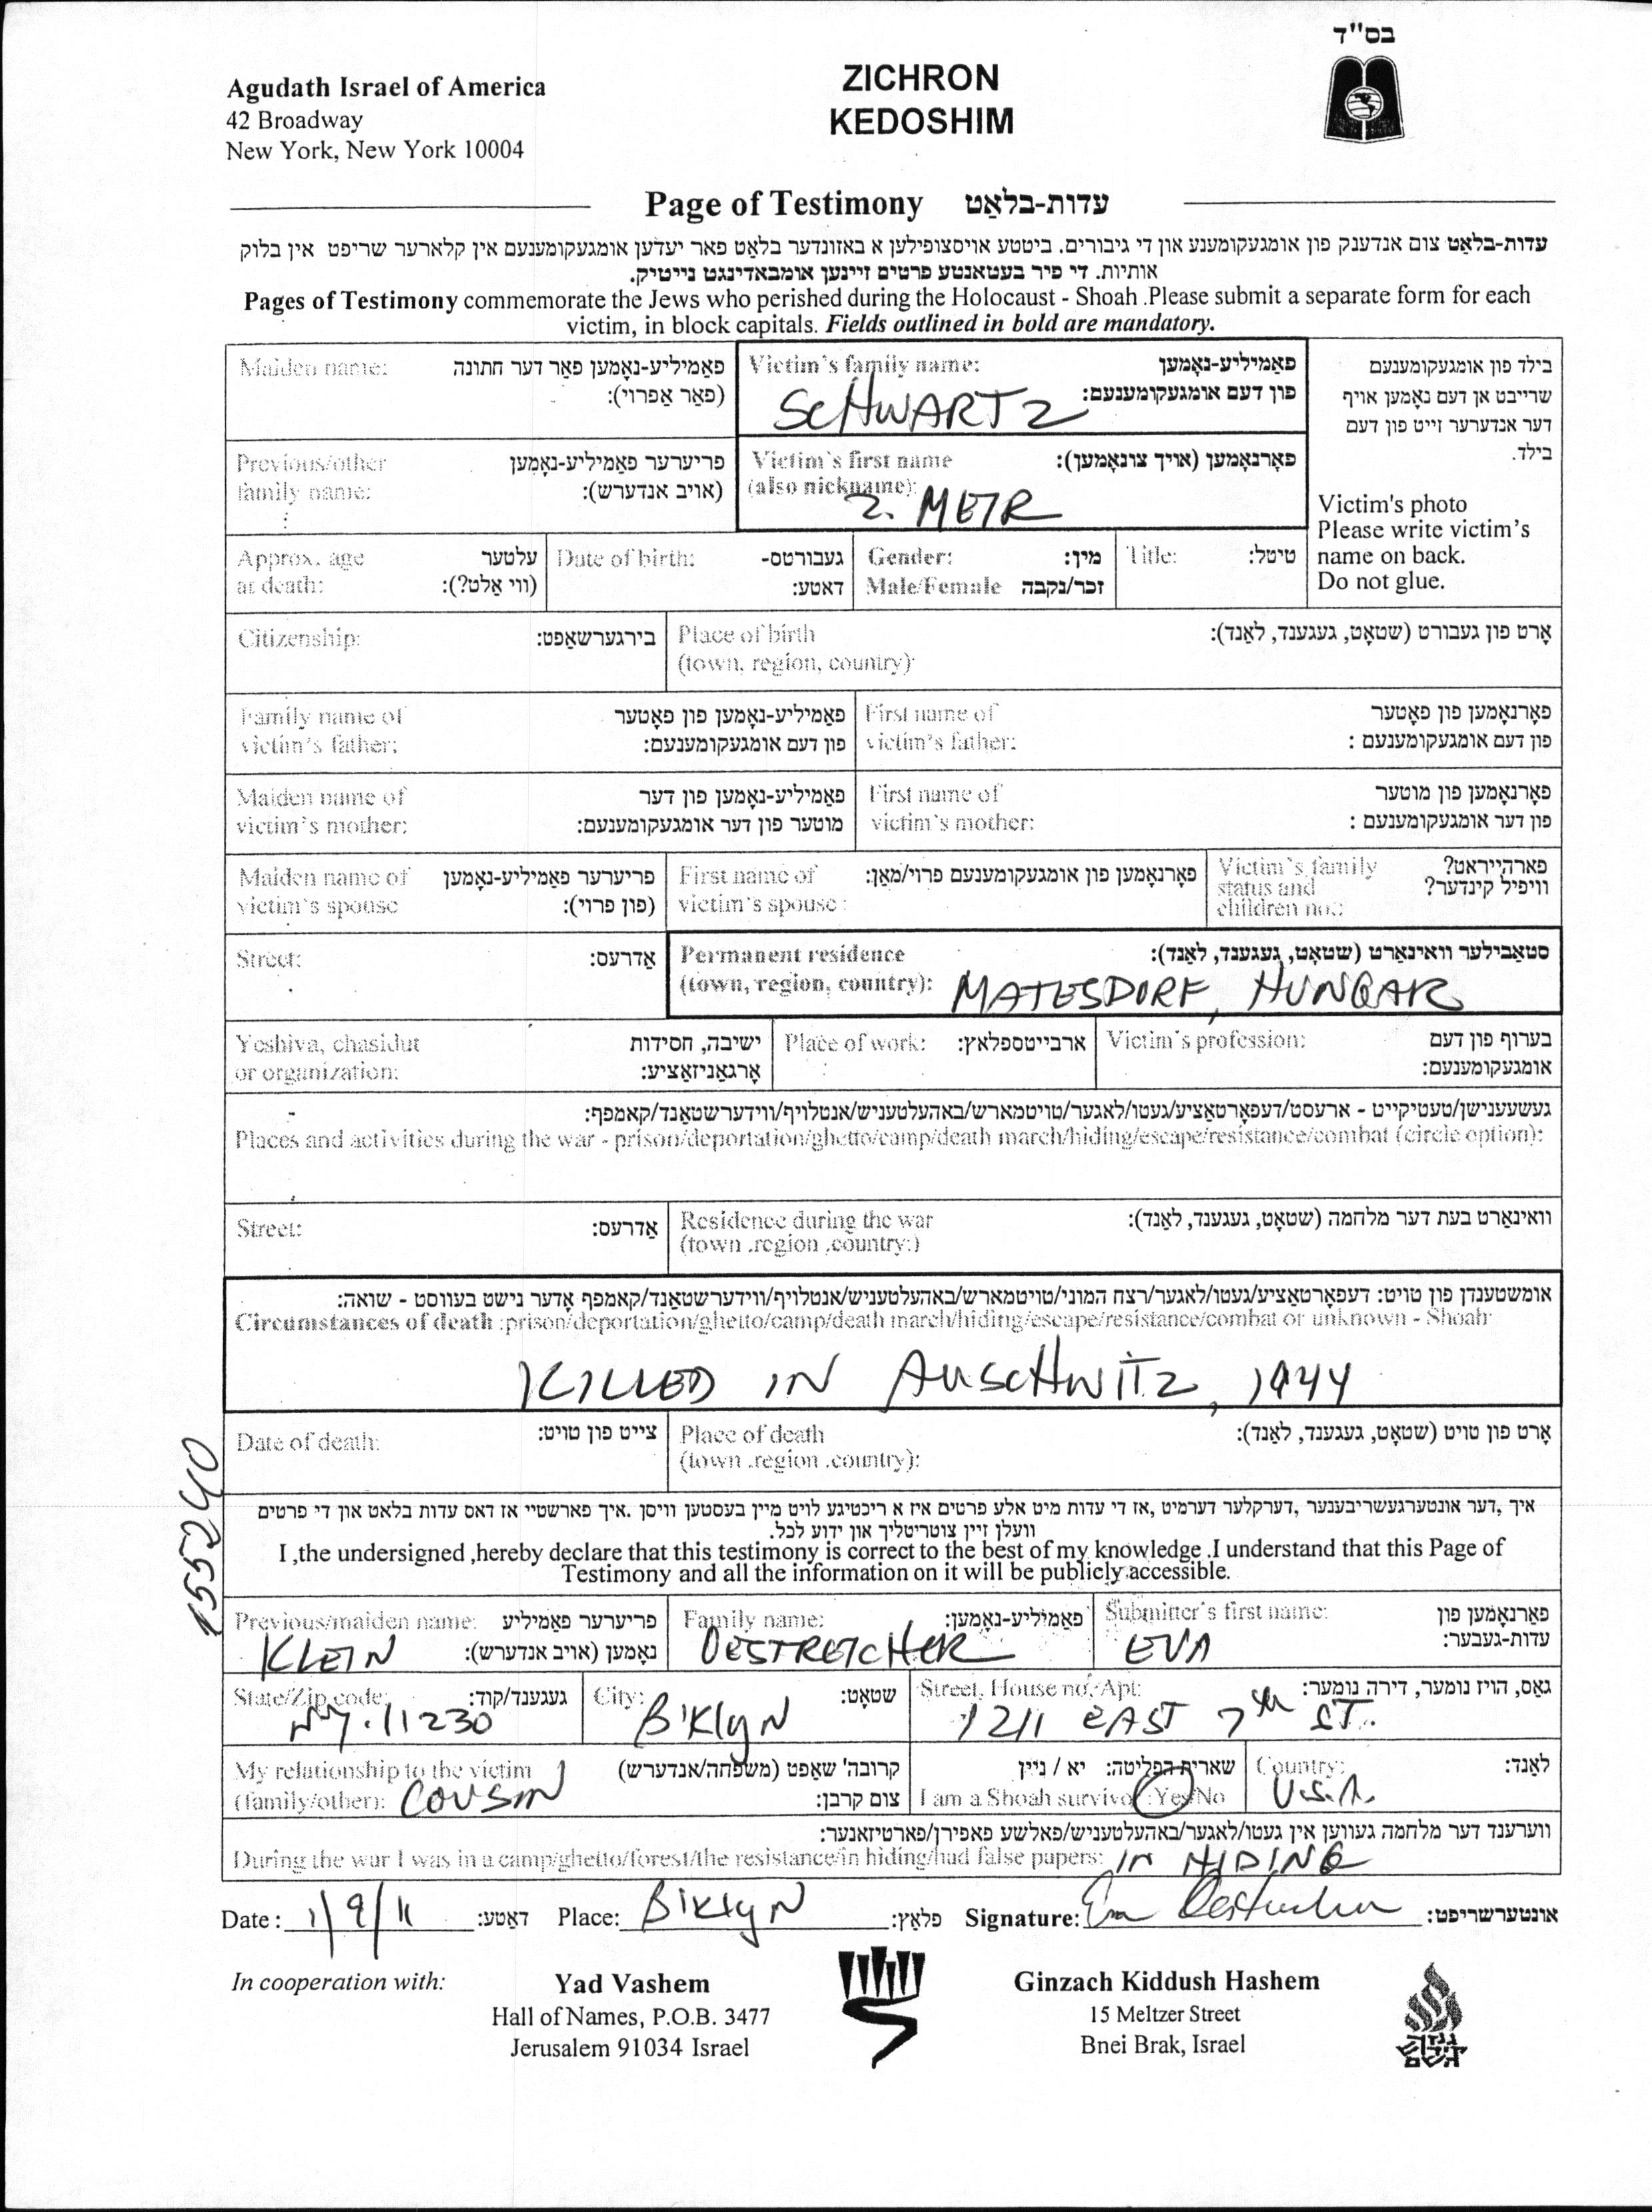 בס"ד
Agudath Israel of America
42 Broadway
New York, New York 10004
ZICHRON
KEDOSHIM
Page of Testimony עדות-בלאַט
עדות-בלאַט צום אנדענק פון אומגעקומענע און די גיבורים. ביטטע אויסצופילען א באזונדער בלאַט פאר יעדען אומגעקומענעם אין קלארער שריפט אין בלוק
אותיות. די פיר בעטאנטע פרטים זיינען אומבאדינגט נייטיק.
Pages of Testimony commemorate the Jews who perished during the Holocaust - Shoah .Please submit a separate form for each
victim, in block capitals. Fields outlined in bold are mandatory.
Maiden name: פאַמיליע-נאָמען פאַר דער חתונה
(פאַר אַפרוי):
Victim's family name: פאַמיליע-נאָמען
פון דעם אומגעקומענעם:
SCHWARTZ
בילד פון אומגעקומענעם
שרייבט אן דעם נאָמען אויף
דער אנדערער זייט פון דעם
בילד.
Previous/other פריערער פאַמיליע-נאָמען
family name: (אויב אנדערש):
Victim's first name פאָרנאָמען (אויך צונאָמען):
(also nickname):
2. MEIR
Victim's photo
Please write victim's
name on back.
Do not glue.
Approx. age עלטער
at death: (ווי אַלט?):
Date of birth: געבורטס-
דאטע:
Gender: מין:
Male/Female זכר/נקבה
Title: טיטל:
Citizenship: בירגערשאַפט:
Place of birth אָרט פון געבורט (שטאָט, געגענד, לאַנד):
(town, region, country):
Family name of פאַמיליע-נאָמען פון פאָטער
victim's father: פון דעם אומגעקומענעם:
First name of פאָרנאָמען פון פאָטער
victim's father: פון דעם אומגעקומענעם :
Maiden name of פאַמיליע-נאָמען פון דער
victim's mother: מוטער פון דער אומגעקומענעם:
First name of פאָרנאָמען פון מוטער
victim's mother: פון דער אומגעקומענעם :
Maiden name of פריערער פאַמיליע-נאָמען
victim's spouse (פון פרוי):
First name of פאָרנאָמען פון אומגעקומענעם פרוי/מאַן:
victim's spouse :
Victim's family פארהייראט?
status and וויפיל קינדער?
children no.:
Street: אַדרעס:
Permanent residence סטאַבילער וואוינאָרט (שטאָט, געגענד, לאַנד):
(town, region, country): MATESDORF, HUNGAR
Yeshiva, chasidut ישיבה, חסידות
or organization: אָרגאַניזאַציע:
Place of work: ארבייטספלאץ:
Victim's profession: בערוף פון דעם
אומגעקומענעם:
געשעענישן/טעטיקייט - ארעסט/דעפאָרטאַציע/געטו/לאגער/טויטמארש/באהעלטעניש/אנטלויף/ווידערשטאַנד/קאמפף:
Places and activities during the war - prison/deportation/ghetto/camp/death march/hiding/escape/resistance/combat (circle option):
Street: אַדרעס:
Residence during the war וואוינאָרט בעת דער מלחמה (שטאָט, געגענד, לאַנד):
(town .region .country:)
אומשטענדן פון טויט: דעפאָרטאַציע/געטו/לאגער/רצח המוני/טויטמארש/באהעלטעניש/אנטלויף/ווידערשטאַנד/קאמפף אָדער נישט בעווסט - שואה:
Circumstances of death :prison/deportation/ghetto/camp/death march/hiding/escape/resistance/combat or unknown - Shoah:
KILLED IN AUSCHWITZ, 1944
Date of death: צייט פון טויט:
Place of death אָרט פון טויט (שטאָט, געגענד, לאַנד):
(town .region .country):
155240
איך ,דער אונטערגעשריבענער ,דערקלער דערמיט ,אז די עדות מיט אלע פרטים איז א ריכטיגע לויט מיין בעסטען וויסן .איך פארשטיי אז דאס עדות בלאט און די פרטים
וועלן זיין צוטריטליך און ידוע לכל.
I ,the undersigned ,hereby declare that this testimony is correct to the best of my knowledge .I understand that this Page of
Testimony and all the information on it will be publicly accessible.
Previous/maiden name: פריערער פאַמיליע
נאָמען (אויב אנדערש):
KLEIN
Family name: פאַמיליע-נאָמען:
OESTREICHER
Submitter's first name: פאָרנאָמען פון
עדות-געבער:
EVA
State/Zip code: געגענד/קוד:
NY. 11230
City: שטאָט:
B'KlyN
Street, House no, Apt: גאַס, הויז נומער, דירה נומער:
1211 EAST 7th ST.
My relationship to the victim קרובה' שאפט (משפחה/אנדערש)
(family/other): COUSIN צום קרבן:
שארית הפליטה: יא / ניין
I am a Shoah survivor :Yes/No
Country: לאַנד:
U.S.A.
ווערענד דער מלחמה געווען אין געטו/לאגער/באהעלטעניש/פאלשע פאפירן/פארטיזאנער:
During the war I was in a camp/ghetto/forest/the resistance/in hiding/had false papers: IN HIDING
Date : 1/9/11 דאַטע: Place: B'KlyN פלאַץ: Signature: Eva Oestreicher אונטערשריפט:
In cooperation with:
Yad Vashem
Hall of Names, P.O.B. 3477
Jerusalem 91034 Israel
Ginzach Kiddush Hashem
15 Meltzer Street
Bnei Brak, Israel
גנזך
קידוש
השם